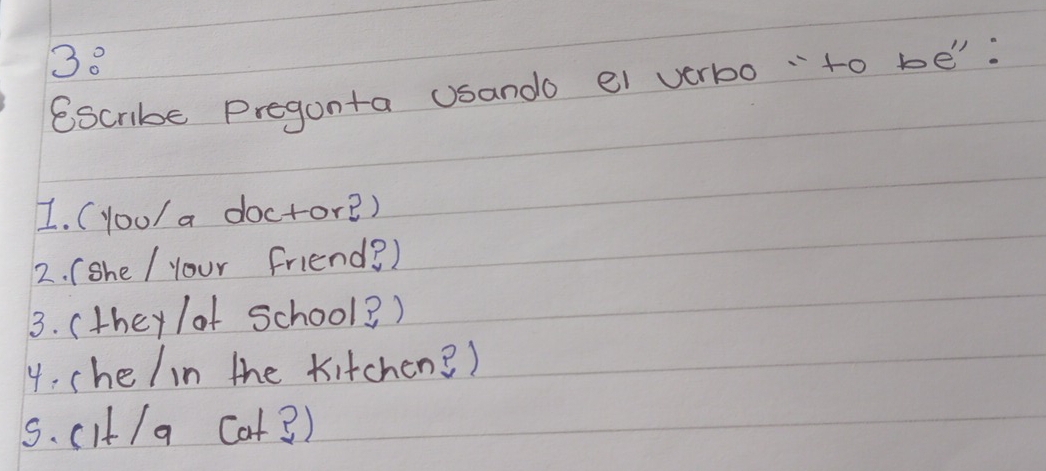 3:
Escribe Pregunta usando el verbo "to be":
1. (you/a doctor?)
2. (She/your friend?)
3. (they/at school?)
4. (he/in the kitchen?)
5. (it/a cat?)